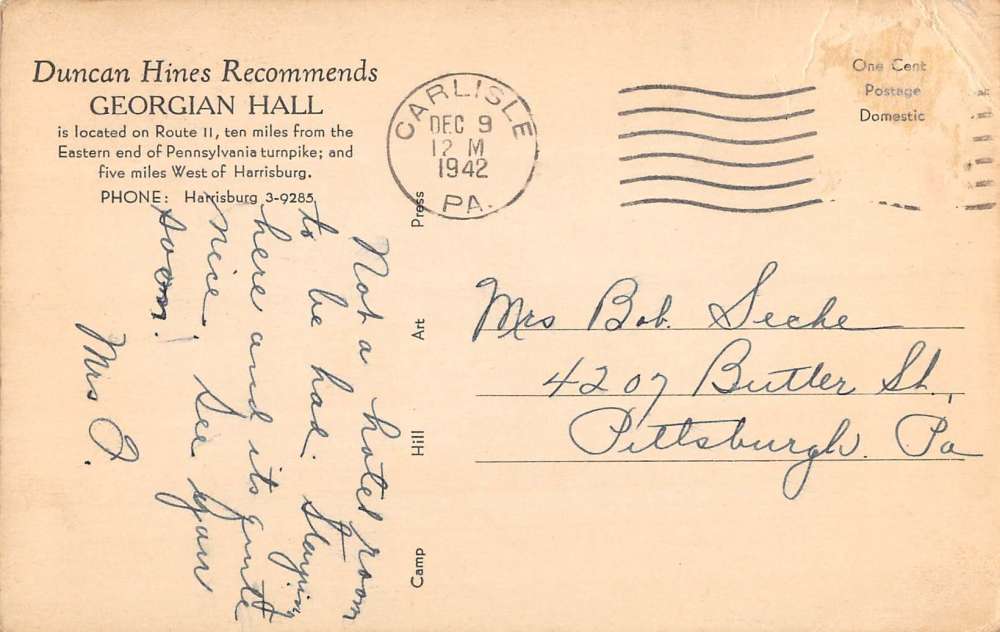 Duncan Hines Recommends
GEORGIAN HALL
is located on Route 11, ten miles from the
Eastern end of Pennsylvania turnpike; and
five miles West of Harrisburg.
PHONE: Harrisburg 3-9285
CARLISLE
DEC 9
12 M
1942
PA.
One Cent
Postage
Domestic
Not a hotel room
to be had. Staying
here and its quite
nice. See you
soon!
Mrs
Camp Hill Art Press
Mrs Bob.
4207 Butler St.,
Pittsburgh. Pa